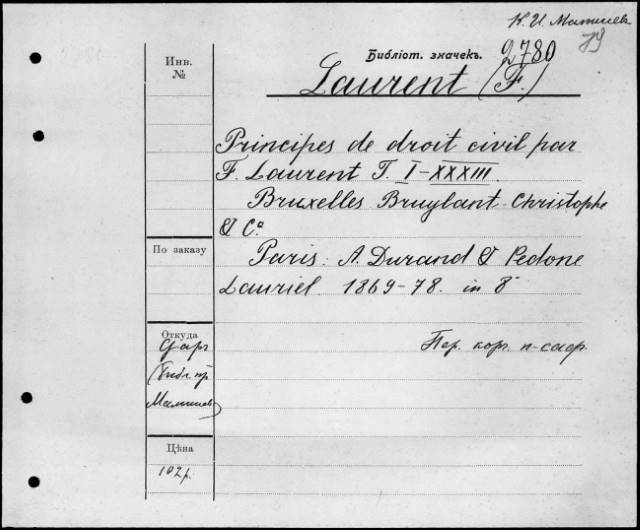 К. И. Малышев
79
Библіот. значекъ.
2780
Инв.
№
Laurent (F.)
Principes de droit civil par
F. Laurent T. I-XXXIII.
Bruxelles Bruylant-Christophe
& Cº
По заказу
Paris: A. Durand & Pedone
Lauriel 1869-78. in 8º
Откуда
Дар
Пер. кор. п-саф.
(Библ. пр
Малышев)
Цѣна
102 р.